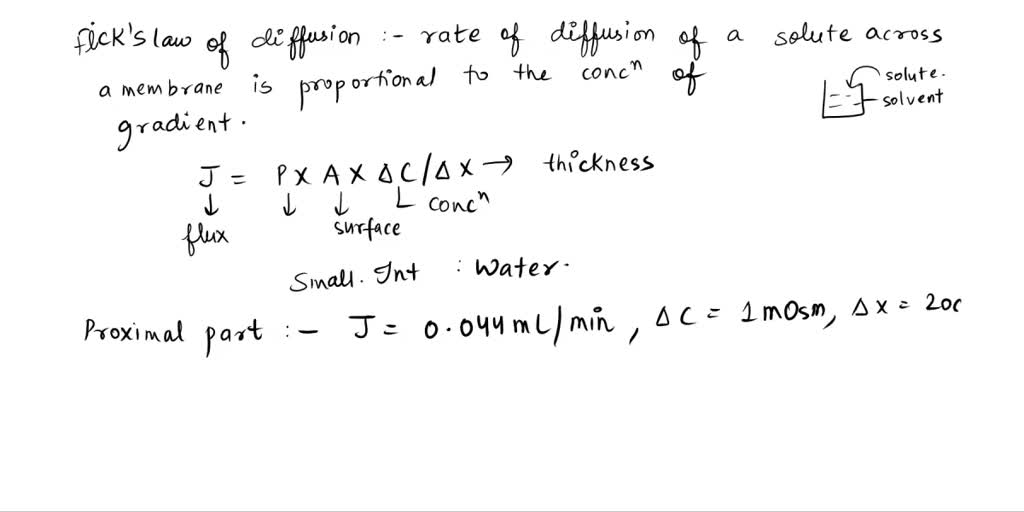 Fick's law of diffusion :- rate of diffusion of a solute across
a membrane is proportional to the concⁿ of
gradient.
solute.
solvent
J = P X A X Δ C / Δ X → thickness
concⁿ
flux
surface
Small. Int : Water.
Proximal part :- J = 0.044 mL/min, Δ C = 1 mOsm, Δ X = 20c